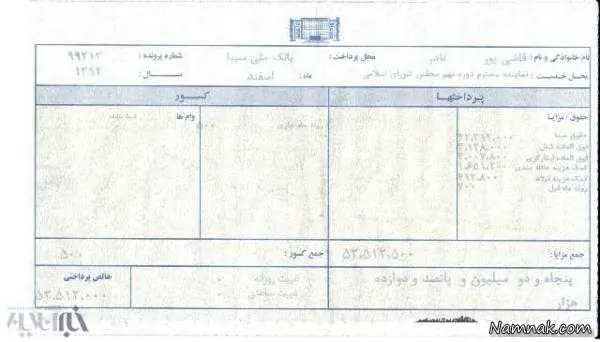 نام خانوادگی و نام : قاضی پور نادر محل پرداخت : بانک ملی سیبا شماره پرونده : ۹۹۲۱۳
محل خدمت : نماینده محترم دوره نهم مجلس شورای اسلامی ماه : اسفند سال : ۱۳۹۲
پرداختها
کسور
حقوق و مزایا
وام ها
حقوق مبنا
فوق العاده شغل
فوق العاده ایثارگری
کمک هزینه عائله مندی
کمک هزینه اولاد
روند ماه قبل ۷۰۰
روند ماه جاری ۵۰۰
جمع مزایا : ۵۲,۵۱۲,۵۰۰
جمع کسور : ۵۰۰
پنجاه و دو میلیون و پانصد و دوازده
هزار
خالص پرداختی
۵۲,۵۱۲,۰۰۰
خبرآنلاین
Namnak.com